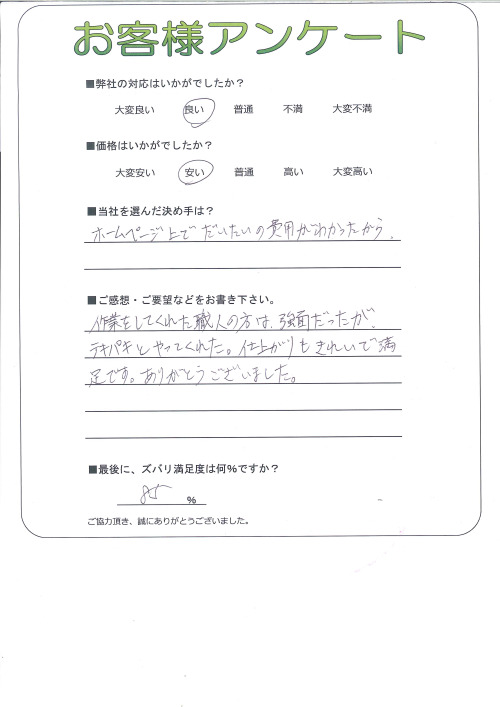 お客様アンケート
■弊社の対応はいかがでしたか？
大変良い 良い 普通 不満 大変不満
■価格はいかがでしたか？
大変安い 安い 普通 高い 大変高い
■当社を選んだ決め手は？
ホームページ上でだいたいの費用がわかったから.
■ご感想・ご要望などをお書き下さい。
作業をしてくれた職人の方は、強面だったが、
テキパキとやってくれた。仕上がりもきれいで満
足です。ありがとうございました。
■最後に、ズバリ満足度は何%ですか？
85 %
ご協力頂き、誠にありがとうございました。